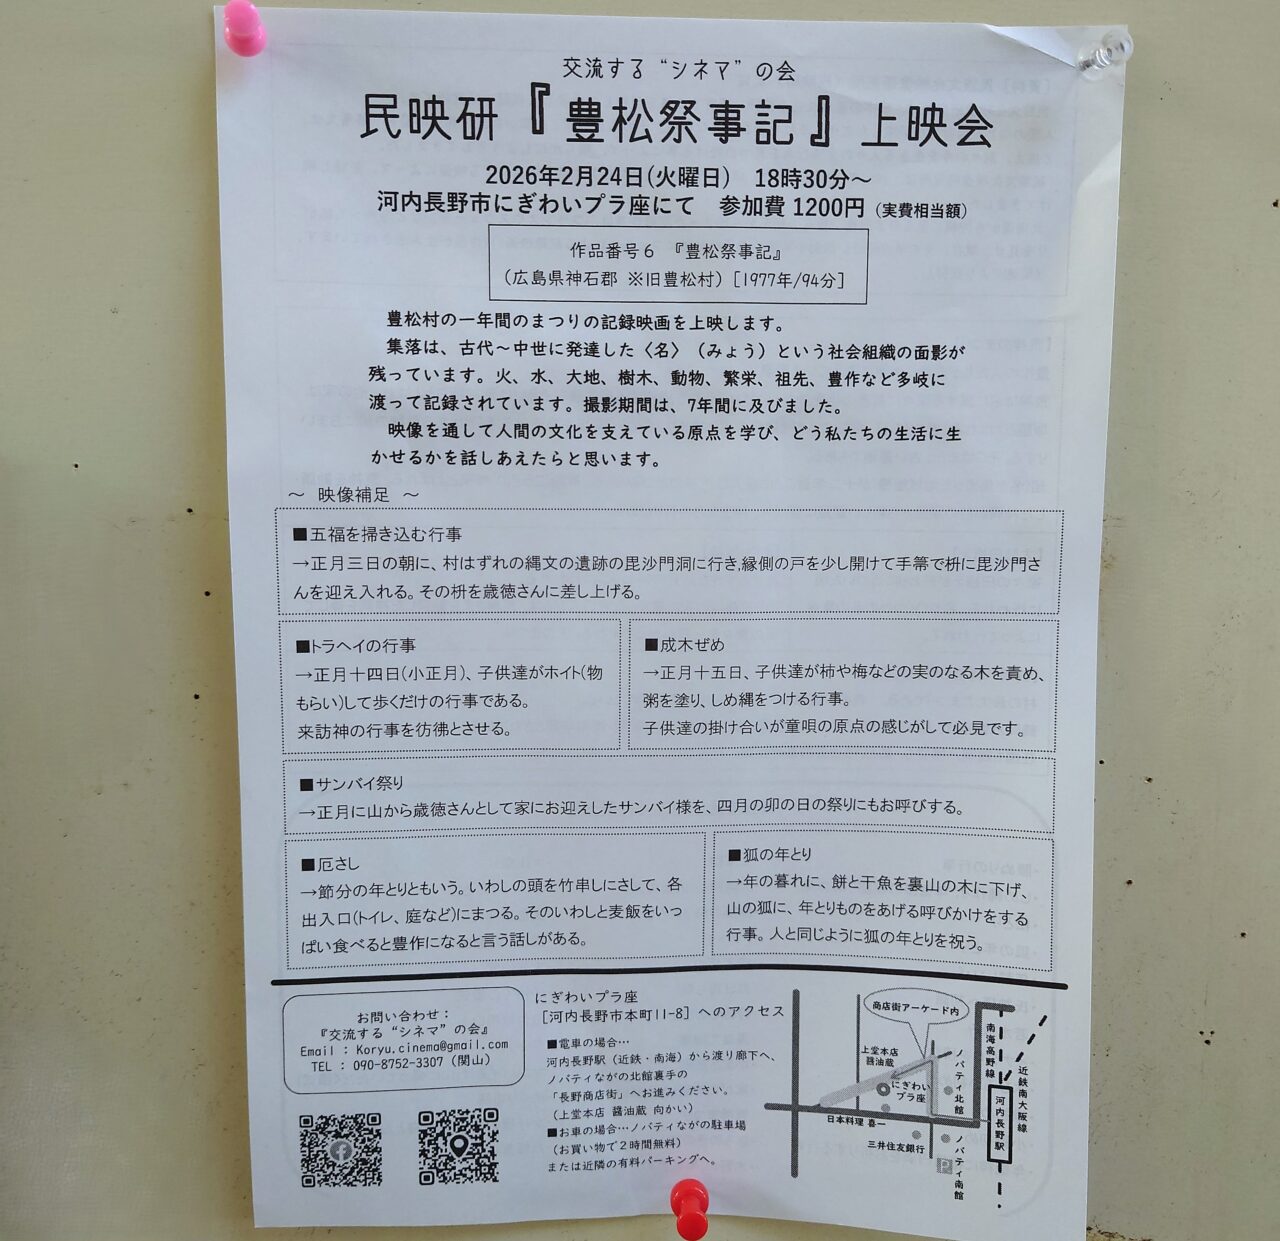 交流する“シネマ”の会
民映研『豊松祭事記』上映会
2026年2月24日(火曜日)　18時30分〜
河内長野市にぎわいプラ座にて　参加費 1200円（実費相当額）
作品番号６　『豊松祭事記』
（広島県神石郡 ※旧豊松村）［1977年/94分］
豊松村の一年間のまつりの記録映画を上映します。
集落は、古代〜中世に発達した〈名〉（みょう）という社会組織の面影が
残っています。火、水、大地、樹木、動物、繁栄、祖先、豊作など多岐に
渡って記録されています。撮影期間は、7年間に及びました。
映像を通して人間の文化を支えている原点を学び、どう私たちの生活に生
かせるかを話しあえたらと思います。
〜 映像補足 〜
■五福を掃き込む行事
→正月三日の朝に、村はずれの縄文の遺跡の毘沙門洞に行き,縁側の戸を少し開けて手箒で枡に毘沙門さ
んを迎え入れる。その枡を歳徳さんに差し上げる。
■トラヘイの行事
→正月十四日(小正月)、子供達がホイト(物
もらい)して歩くだけの行事である。
来訪神の行事を彷彿とさせる。
■成木ぜめ
→正月十五日、子供達が柿や梅などの実のなる木を責め、
粥を塗り、しめ縄をつける行事。
子供達の掛け合いが童唄の原点の感じがして必見です。
■サンバイ祭り
→正月に山から歳徳さんとして家にお迎えしたサンバイ様を、四月の卯の日の祭りにもお呼びする。
■厄さし
→節分の年とりともいう。いわしの頭を竹串しにさして、各
出入口(トイレ、庭など)にまつる。そのいわしと麦飯をいっ
ぱい食べると豊作になると言う話しがある。
■狐の年とり
→年の暮れに、餅と干魚を裏山の木に下げ、
山の狐に、年とりものをあげる呼びかけをする
行事。人と同じように狐の年とりを祝う。
お問い合わせ：
『交流する“シネマ”の会』
Email : Koryu.cinema@gmail.com
TEL : 090-8752-3307（関山）
にぎわいプラ座
［河内長野市本町11-8］へのアクセス
■電車の場合…
河内長野駅（近鉄・南海）から渡り廊下へ、
ノバティながの北館裏手の
「長野商店街」へお進みください。
（上堂本店 醤油蔵 向かい）
■お車の場合…ノバティながの駐車場
（お買い物で２時間無料）
または近隣の有料パーキングへ。
商店街アーケード内
上堂本店
醤油蔵
にぎわい
プラ座
日本料理 喜一
三井住友銀行
ノバティ北館
ノバティ南館
P
南海高野線
河内長野駅
近鉄南大阪線